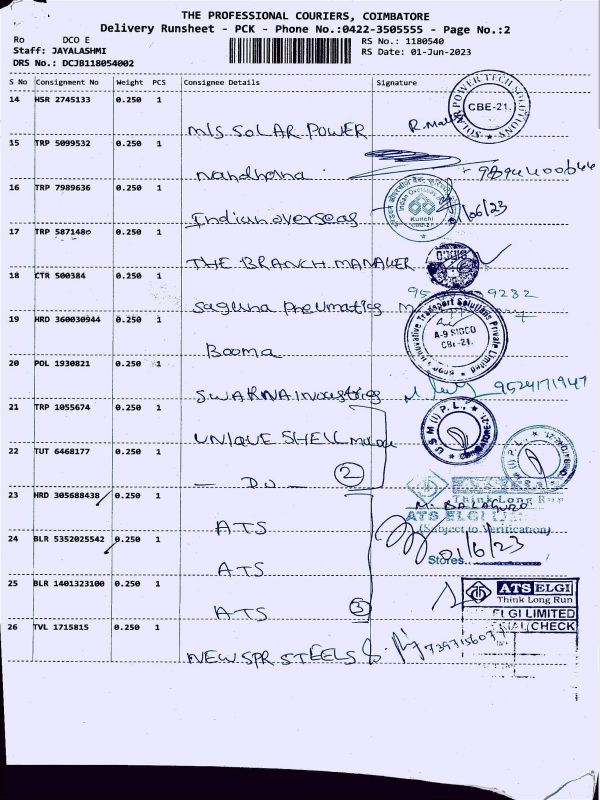 THE PROFESSIONAL COURIERS, COIMBATORE
Delivery Runsheet - PCK - Phone No.:0422-3505555 - Page No.:2
Ro DCO E
Staff: JAYALASHMI
DRS No.: DCJB118054002
RS No.: 1180540
RS Date: 01-Jun-2023
S No Consignment No Weight PCS Consignee Details Signature
14 HSR 2745133 0.250 1
M/S SOLAR POWER R. Mall
POWER TECH SOLUTIONS CBE-21.
15 TRP 5099532 0.250 1
Nandhana
16 TRP 7989636 0.250 1
Indian overseas /06/23
Indian Overseas Kurichi
17 TRP 5871480 0.250 1
THE BRANCH MANAGER
SIDCO
18 CTR 500384 0.250 1
Saguna Pneumatics 9232
19 HRD 360030944 0.250 1
Booma
Innovative Transport Solutions Private Limited A-9 SIDCO CBE-21.
20 POL 1930821 0.250 1
SWARNA Industries 9524171947
21 TRP 1055674 0.250 1
UNIQUE SHELL
U S M (I) P. L., COIMBATORE-21.
22 TUT 6468177 0.250 1
— Do — 2
(I) P.L.,
23 HRD 305688438 0.250 1
ATS
Think Long Run
M. BALAGURO
ATS ELGI
(Subject to Verification)
01/6/23
Stores
24 BLR 5352025542 0.250 1
ATS
25 BLR 1401323100 0.250 1
ATS 3
ATS ELGI
Think Long Run
ELGI LIMITED
CHECK
26 TVL 1715815 0.250 1
NEW SPR STEELS